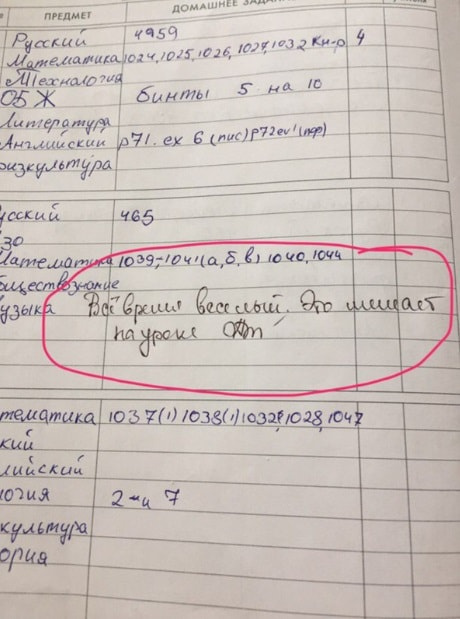 ПРЕДМЕТ ДОМАШНЕЕ ЗАДАН
Русский 4959
Математика 1024, 1025, 1026, 1027, 1032 Кн-р 4
Технология
ОБЖ бинты 5 на 10
Литература
Английский p71. ex 6 (пис) p72 ex 1 (пер)
физкультура
усский 465
зо
Математика 1039, 1041 (а, б, в) 1040, 1044
бществознание
узыка Всё время веселый. Это мешает
на уроке
тематика 1037(1) 1038(1) 1032, 1028, 1047
ский
лийский
логия 2 и 7
культура
ория